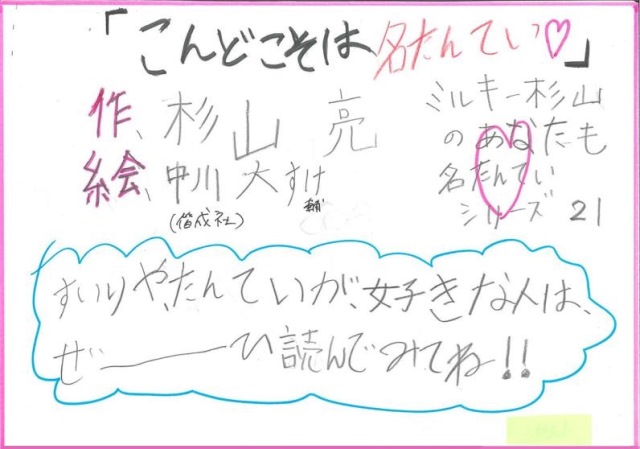 「こんどこそは名たんてい♡」
作、杉山 亮
絵、中川 大すけ
輔
(偕成社)
ミルキー杉山
のあなたも
名たんてい
シリーズ 21
すいりや、たんていが、好きな人は、
ぜーーひ読んでみてね!!